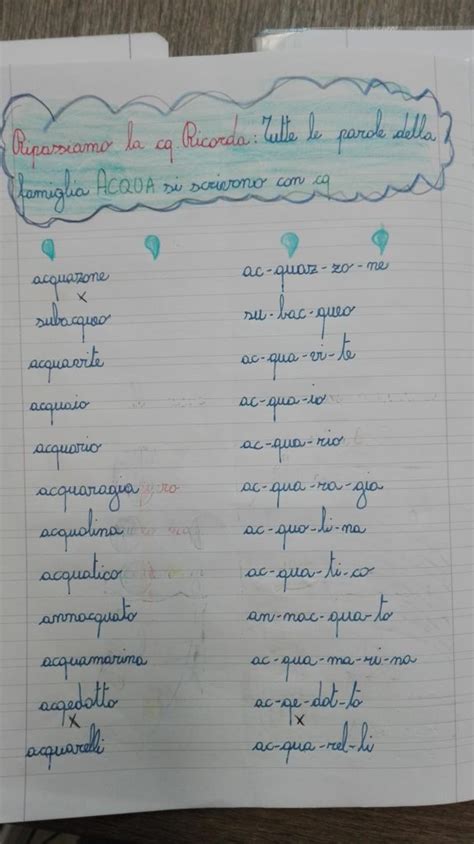 Ripassiamo la cq. Ricorda: Tutte le parole della
famiglia ACQUA si scrivono con cq
acquazone ac-quaz-zo-ne
x
subacqueo su-bac-queo
acquavite ac-qua-vi-te
acquaio ac-qua-io
acquario ac-qua-rio
acquaragia ac-qua-ra-gia
acquolina ac-quo-li-na
acquatico ac-qua-ti-co
annacquato an-nac-qua-to
acquamarina ac-qua-ma-ri-na
acqedotto ac-qe-dot-to
x x
acquarelli ac-qua-rel-li